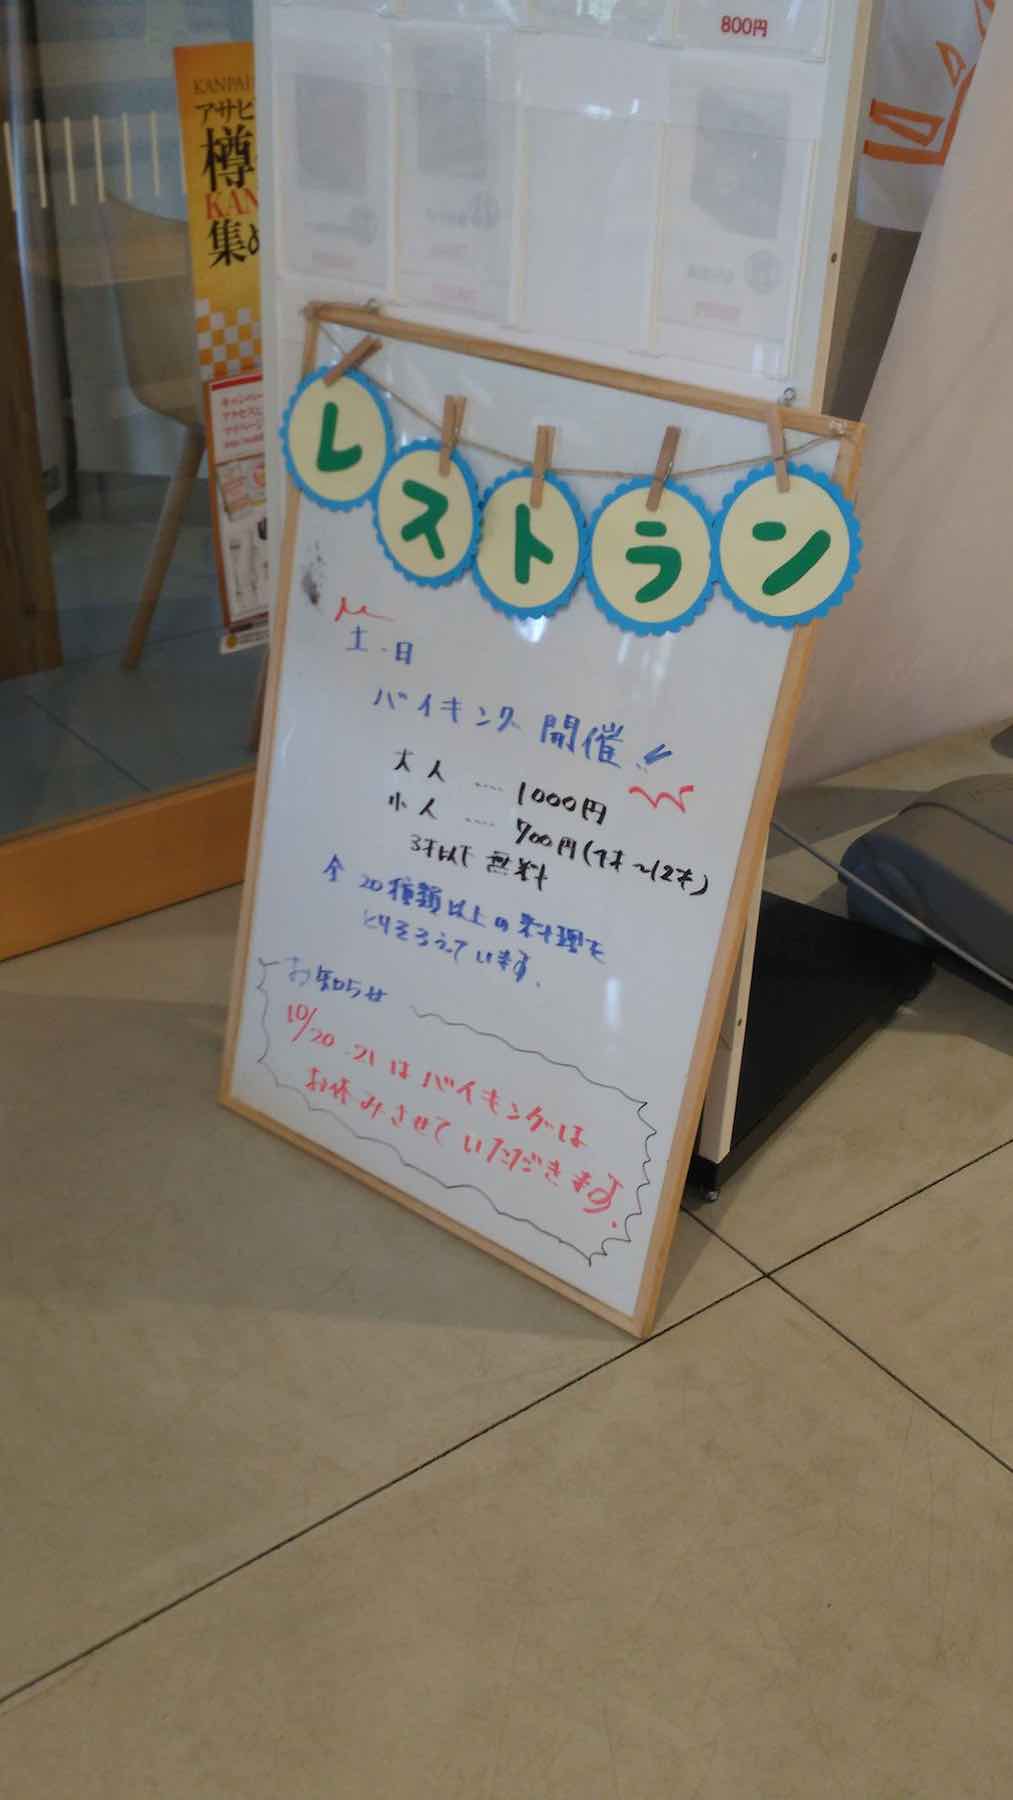 800円
KANPAI
アサヒ
樽
KAN
集め
レストラン
土・日
バイキング 開催!!
大人 …… 1000円
小人 …… 700円(7才~12才)
3才以下 無料
全 20種類以上の料理を
とりそろえています。
お知らせ
10/20・21はバイキングは
お休みさせていただきます。